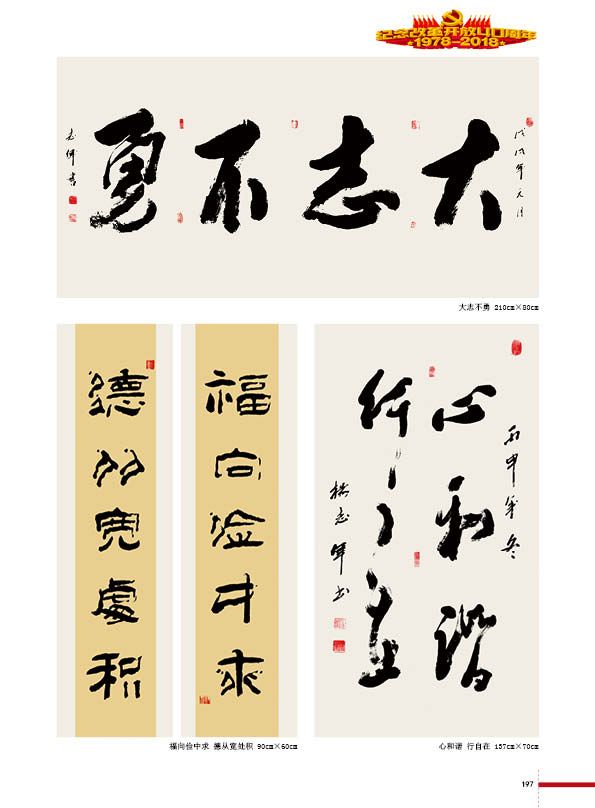 纪念改革开放40周年
1978-2018
大志不勇
戊戌年元月
志伟书
大志不勇 210cm×80cm
福向俭中求
德从宽处积
福向俭中求 德从宽处积 90cm×60cm
丙申年冬
心和谐
行自在
志军书
心和谐 行自在 137cm×70cm
197